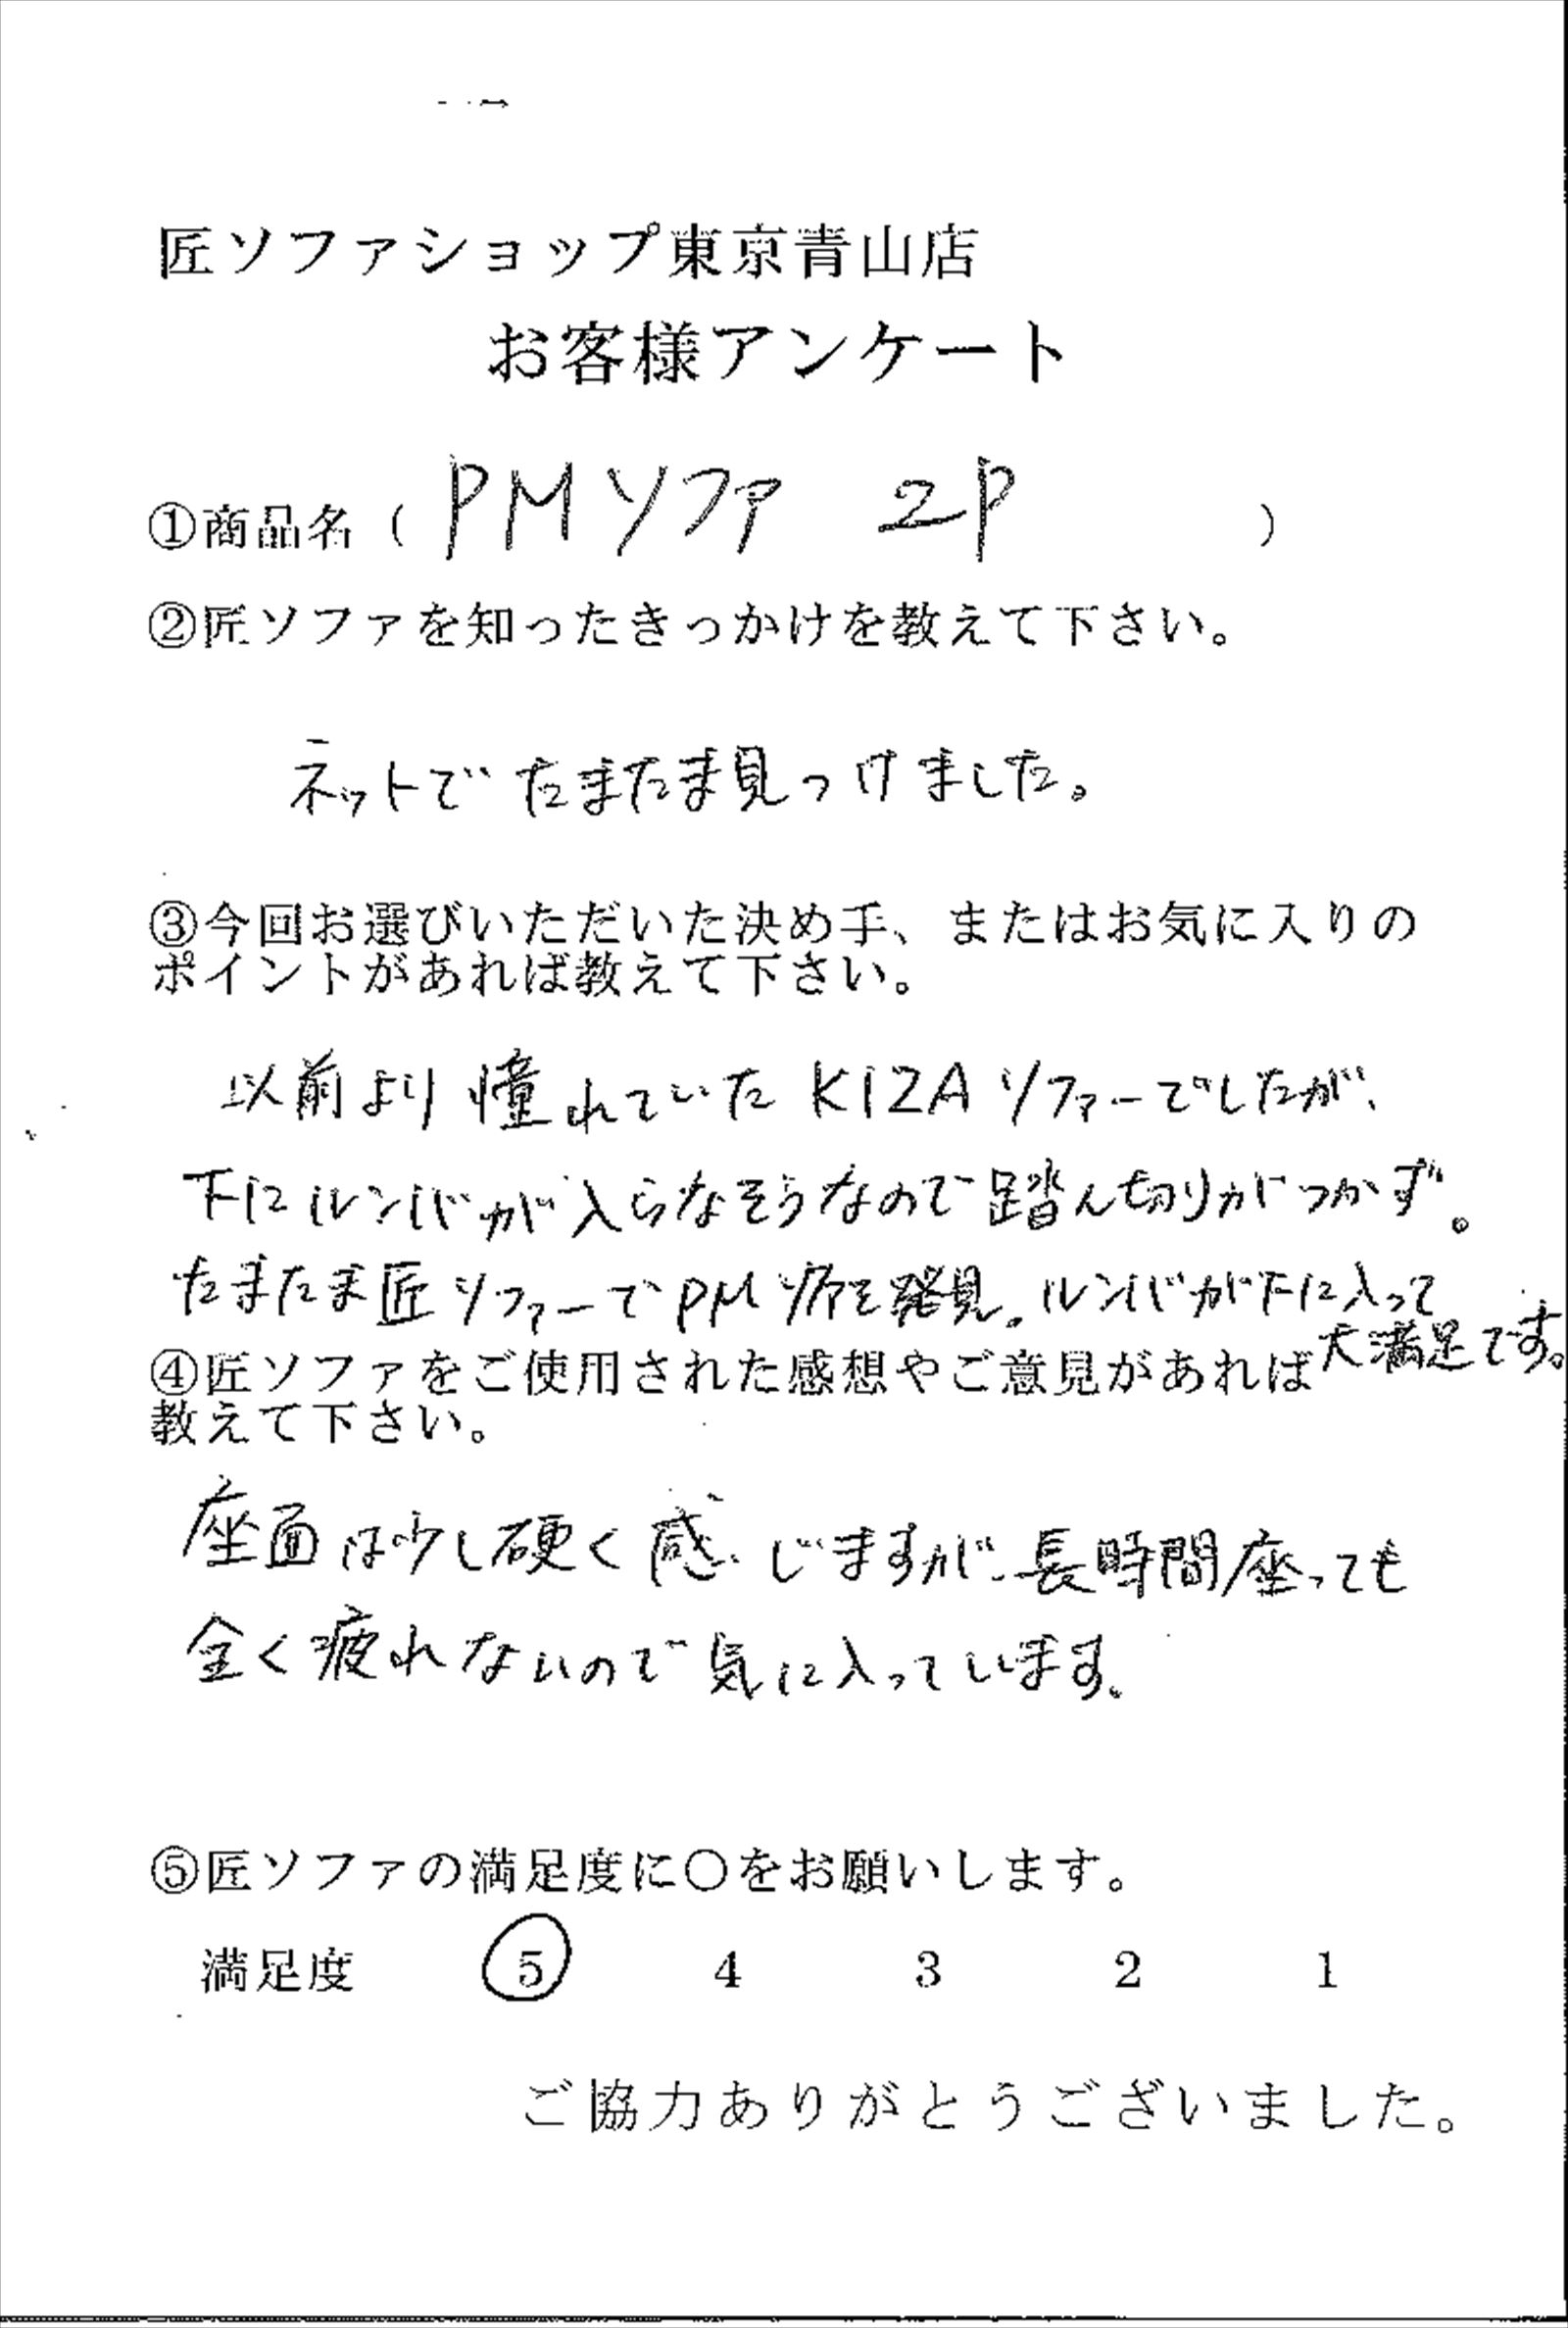 匠ソファショップ東京青山店
お客様アンケート
①商品名（ PMソファ 2P ）
②匠ソファを知ったきっかけを教えて下さい。
ネットでたまたま見つけました。
③今回お選びいただいた決め手、またはお気に入りの
ポイントがあれば教えて下さい。
以前より憧れていたKIZAソファーでしたが、
下にルンバが入らなそうなので踏ん切りがつかず。
たまたま匠ソファーでPMソファを発見。ルンバが下に入って
大満足です。
④匠ソファをご使用された感想やご意見があれば
教えて下さい。
座面は少し硬く感じますが、長時間座っても
全く疲れないので気に入っています。
⑤匠ソファの満足度に〇をお願いします。
満足度 5 4 3 2 1
ご協力ありがとうございました。